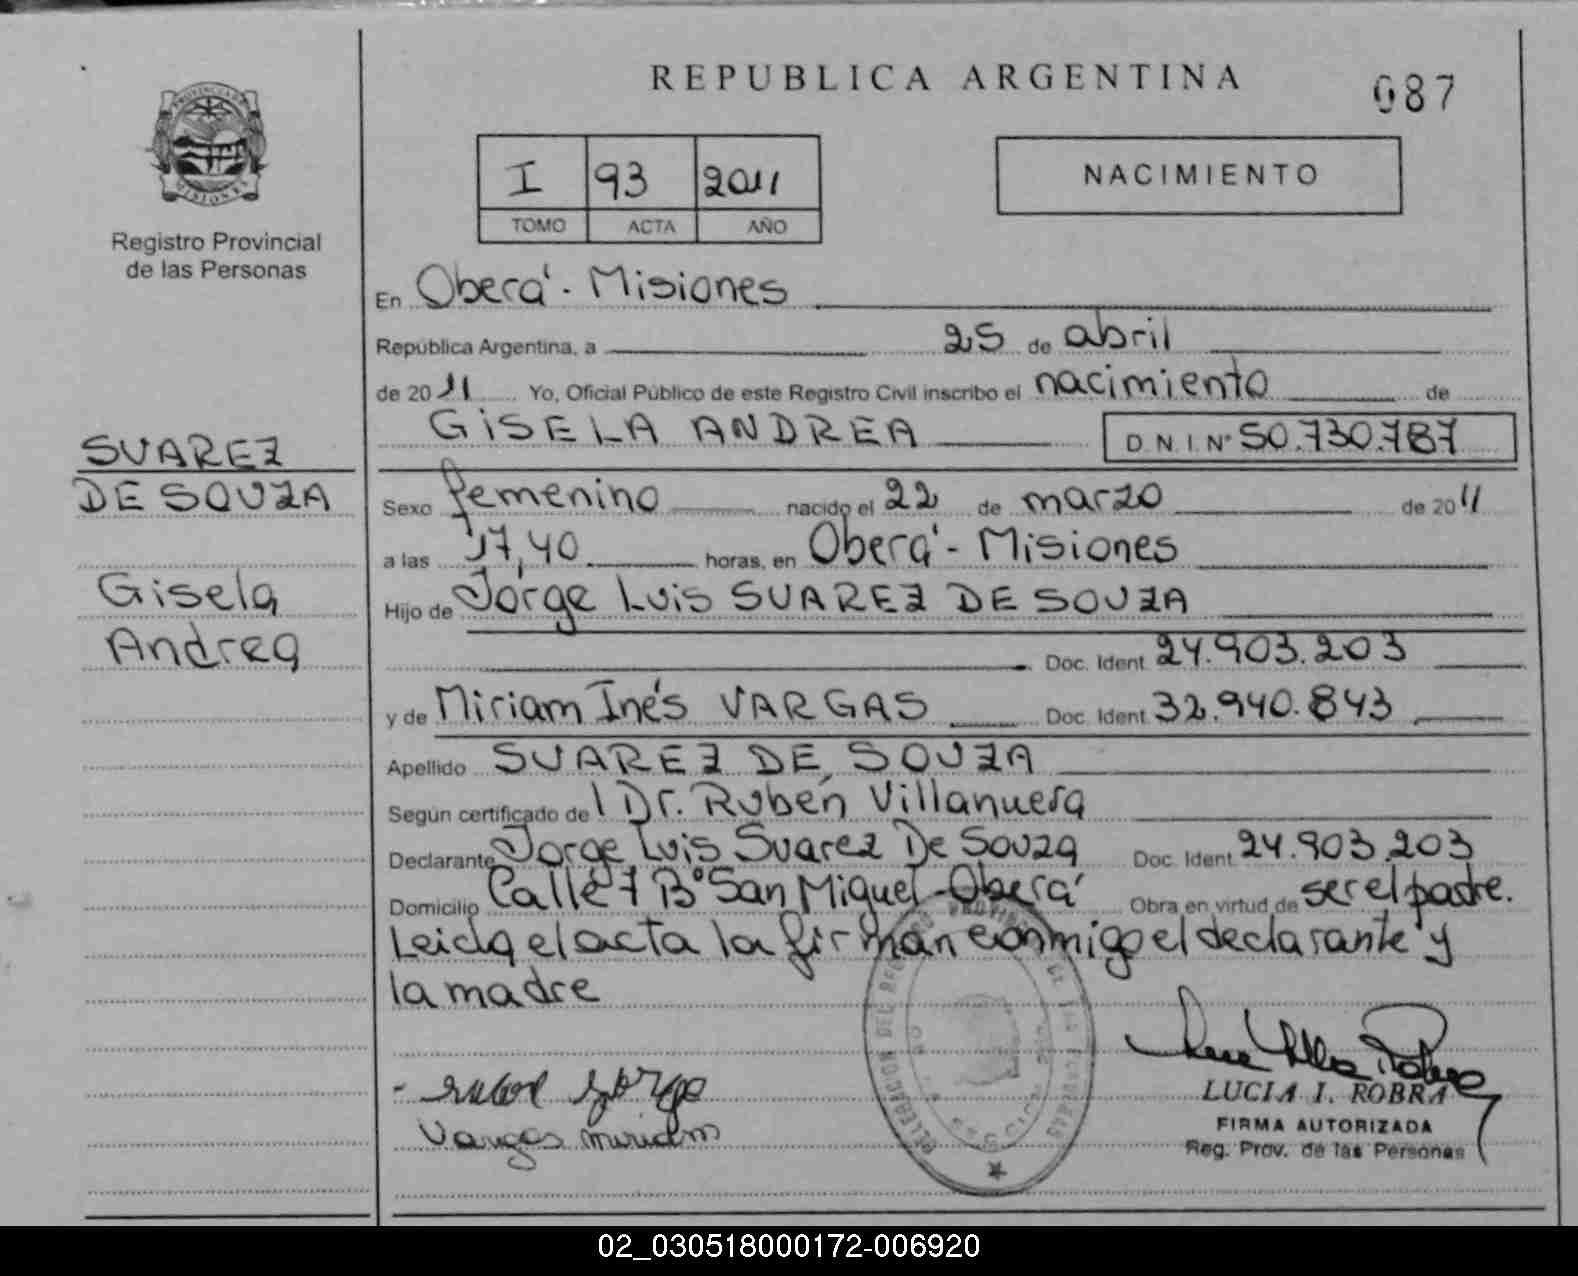 REPUBLICA ARGENTINA
087
PROVINCIA DE
MISIONES
Registro Provincial
de las Personas
I 93 2011
TOMO ACTA AÑO
NACIMIENTO
En Oberá - Misiones
República Argentina, a 25 de abril
de 2011 Yo, Oficial Público de este Registro Civil inscribo el nacimiento de
GISELA ANDREA D.N.I. Nº 50.730.787
SUAREZ
DE SOUZA
Gisela
Andrea
Sexo femenino nacido el 22 de marzo de 2011
a las 17,40 horas, en Oberá - Misiones
Hijo de Jorge Luis SUAREZ DE SOUZA
Doc. Ident. 24.903.203
y de Miriam Inés VARGAS Doc. Ident. 32.940.843
Apellido SUAREZ DE SOUZA
Según certificado de Dr. Rubén Villanueva
Declarante Jorge Luis Suarez De Souza Doc. Ident. 24.903.203
Domicilio Calle 7 Bº San Miguel - Oberá Obra en virtud de ser el padre.
Leida el acta la firman conmigo el declarante y
la madre
Vargas miriam
DELEGACION DEL REGISTRO PROVINCIAL DE LAS PERSONAS
LUCIA I. ROBRA
FIRMA AUTORIZADA
Reg. Prov. de las Personas
02_030518000172-006920